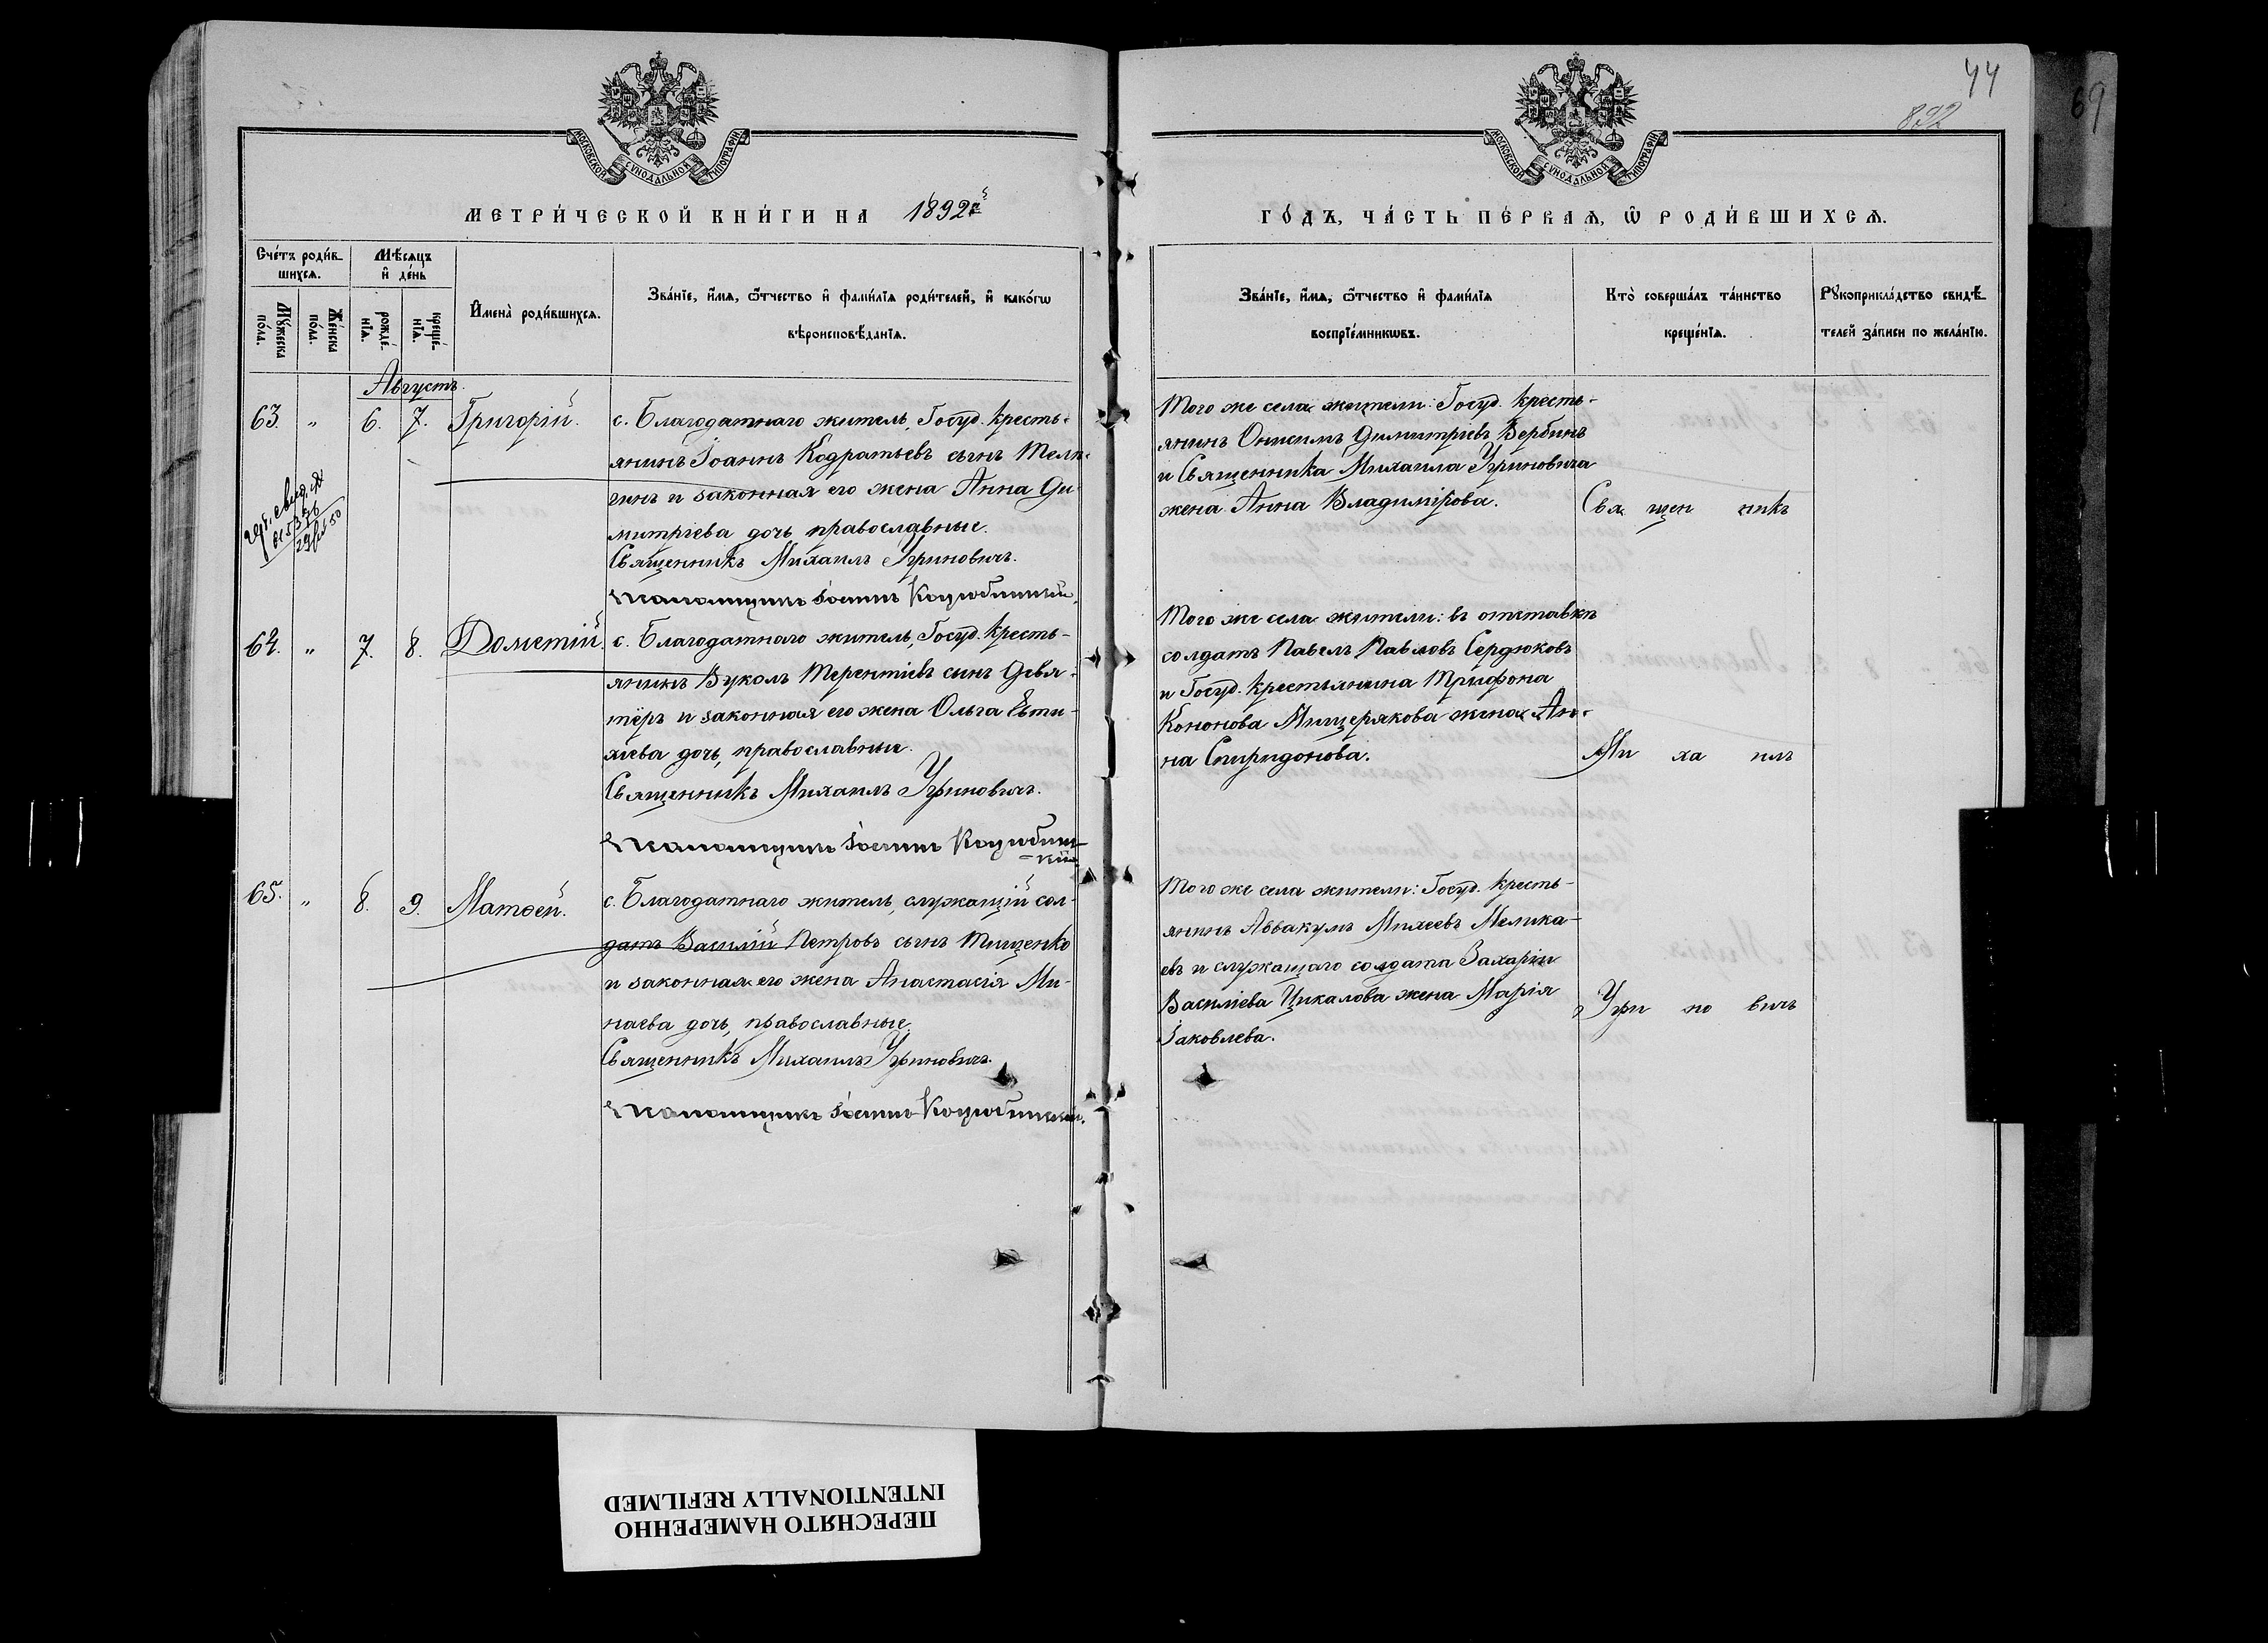 44
892
69
МОСКОВСКОЙ СѴНОДАЛЬНОЙ ТИПОГРАФІИ
МОСКОВСКОЙ СѴНОДАЛЬНОЙ ТИПОГРАФІИ
МЕТРИ́ЧЕСКОЙ КНИ́ГИ НА 1892й
ГО́ДЪ, ЧА́СТЬ ПЕ́РВАѦ, Ѽ РОДИ́ВШИХСѦ.
Сче́тъ роди́в-
шихсѧ.
Мꙋ́жеска
по́ла.
Же́нска
по́ла.
Мѣ́сѧцъ
и҆ де́нь
рожде́-
нїѧ.
креще́-
нїѧ.
И҆мена̀ роди́вшихсѧ.
Зва́нїе, и҆́мѧ, ѻ҆́тчество и҆ фами́лїѧ роди́телей, и҆ како́гѡ
вѣроисповѣ́данїѧ.
Зва́нїе, и҆́мѧ, ѻ҆́тчество и҆ фами́лїѧ
воспрїе́мникѡвъ.
Кто̀ соверша́лъ та́инство
креще́нїѧ.
Рꙋкоприкла́дство свидѣ́-
телей за́писи по жела́нїю.
Августъ.
63. " 6. 7. Григорій.
с. Благодатнаго житель, Госуд. кресть-
янинъ Іоаннъ Кодратьевъ сынъ Теля-
гинъ и законная его жена Анна Ди-
митріева дочь православные.
Священникъ Михаилъ Угриновичъ.
Псаломщикъ Іоаннъ Коцюбинскій.
Того же села жители: Госуд. кресть-
янинъ Онисимъ Димитріевъ Вербинъ
и Священника Михаила Угриновича
жена Анна Владимірова.
Свя щен никъ
64. " 7. 8. Дометій.
с. Благодатнаго житель, Госуд. кресть-
янинъ Вуколъ Терентіевъ сынъ Девя-
тёръ и законная его жена Ольга Евти-
хіева дочь, православные.
Священникъ Михаилъ Угриновичъ.
Псаломщикъ Іоаннъ Коцюбин-
-скій
Того же села жители: въ отставкѣ
солдатъ Павелъ Павловъ Сердюковъ
и Госуд. крестьянина Трифона
Кононова Мищерякова жена Ан-
на Спиридонова.
Ми ха илъ
65. " 8. 9. Матѳей.
с. Благодатнаго житель, служащій сол-
датъ Василій Петровъ сынъ Тищенко
и законная его жена Анастасія Ми-
наева дочь, православные.
Священникъ Михаилъ Угриновичъ.
Псаломщикъ Іоаннъ Коцюбинскій.
Того же села жители: Госуд. кресть-
янинъ Аввакумъ Михеевъ Мелика-
евъ и служащаго солдата Захаріи
Василіева Цикалова жена Марія
Іаковлева.
Угри но вичъ
ПЕРЕСНЯТО НАМЕРЕННО
INTENTIONALLY REFILMED